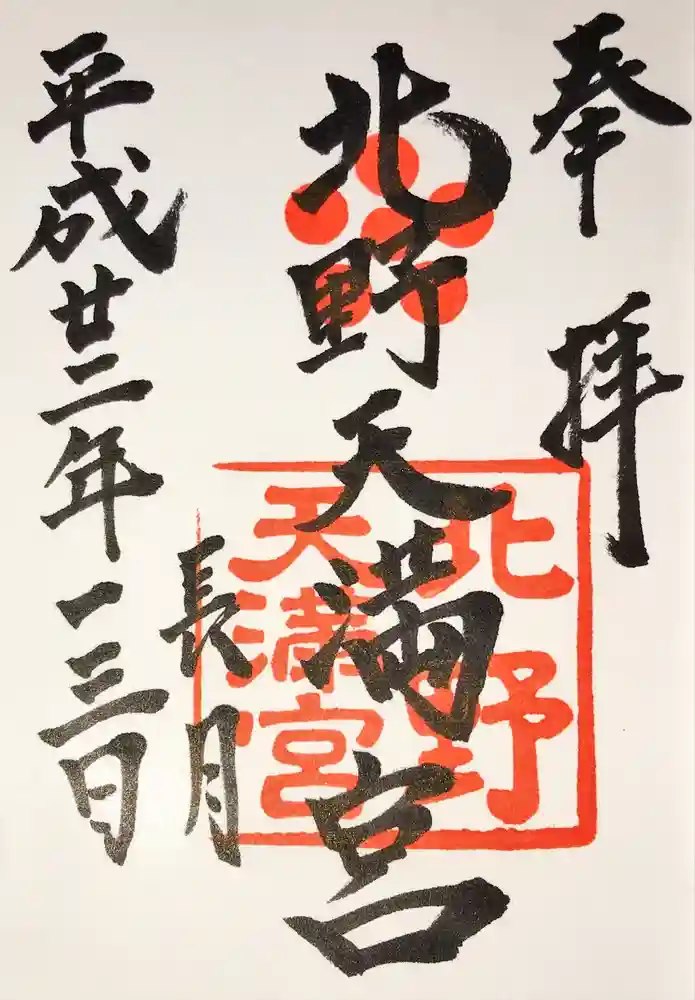 奉拝
北野天満宮
北野
天満宮
長月
平成廿二年一三日